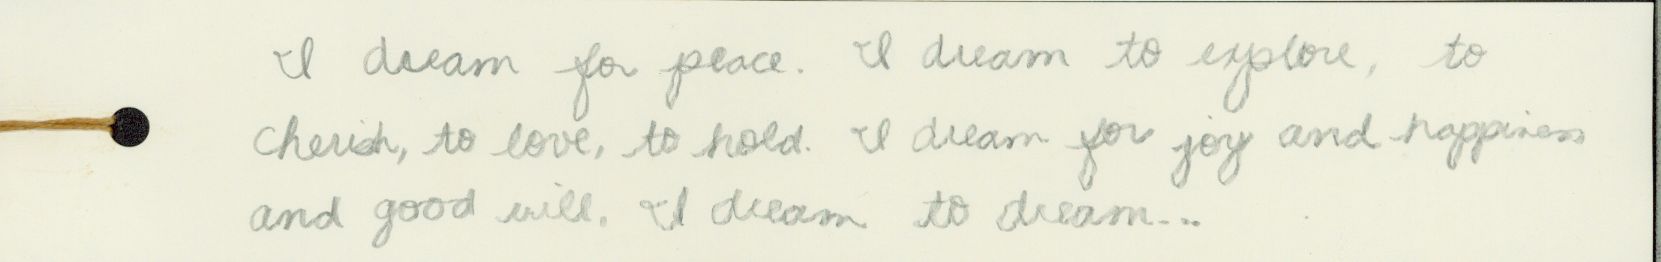 I dream for peace. I dream to explore, to
cherish, to love, to hold. I dream for joy and happiness
and good will. I dream to dream...